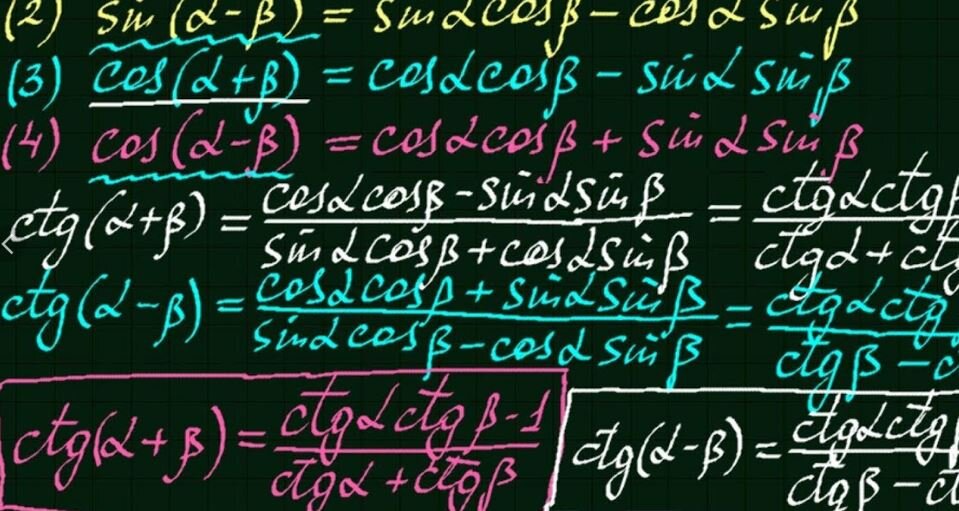 (2) sin(α-β) = sinαcosβ-cosαsinβ
(3) cos(α+β) = cosαcosβ - sinαsinβ
(4) cos(α-β) = cosαcosβ + sinαsinβ
ctg(α+β) = (cosαcosβ-sinαsinβ)/(sinαcosβ+cosαsinβ) = ctgαctgβ/ctgα+
ctg(α-β) = (cosαcosβ+sinαsinβ)/(sinαcosβ-cosαsinβ) = ctgαctg/ctgβ-
ctg(α+β) = (ctgαctgβ-1)/(ctgα+ctgβ) ctg(α-β) = ctgαctgβ/ctgβ-